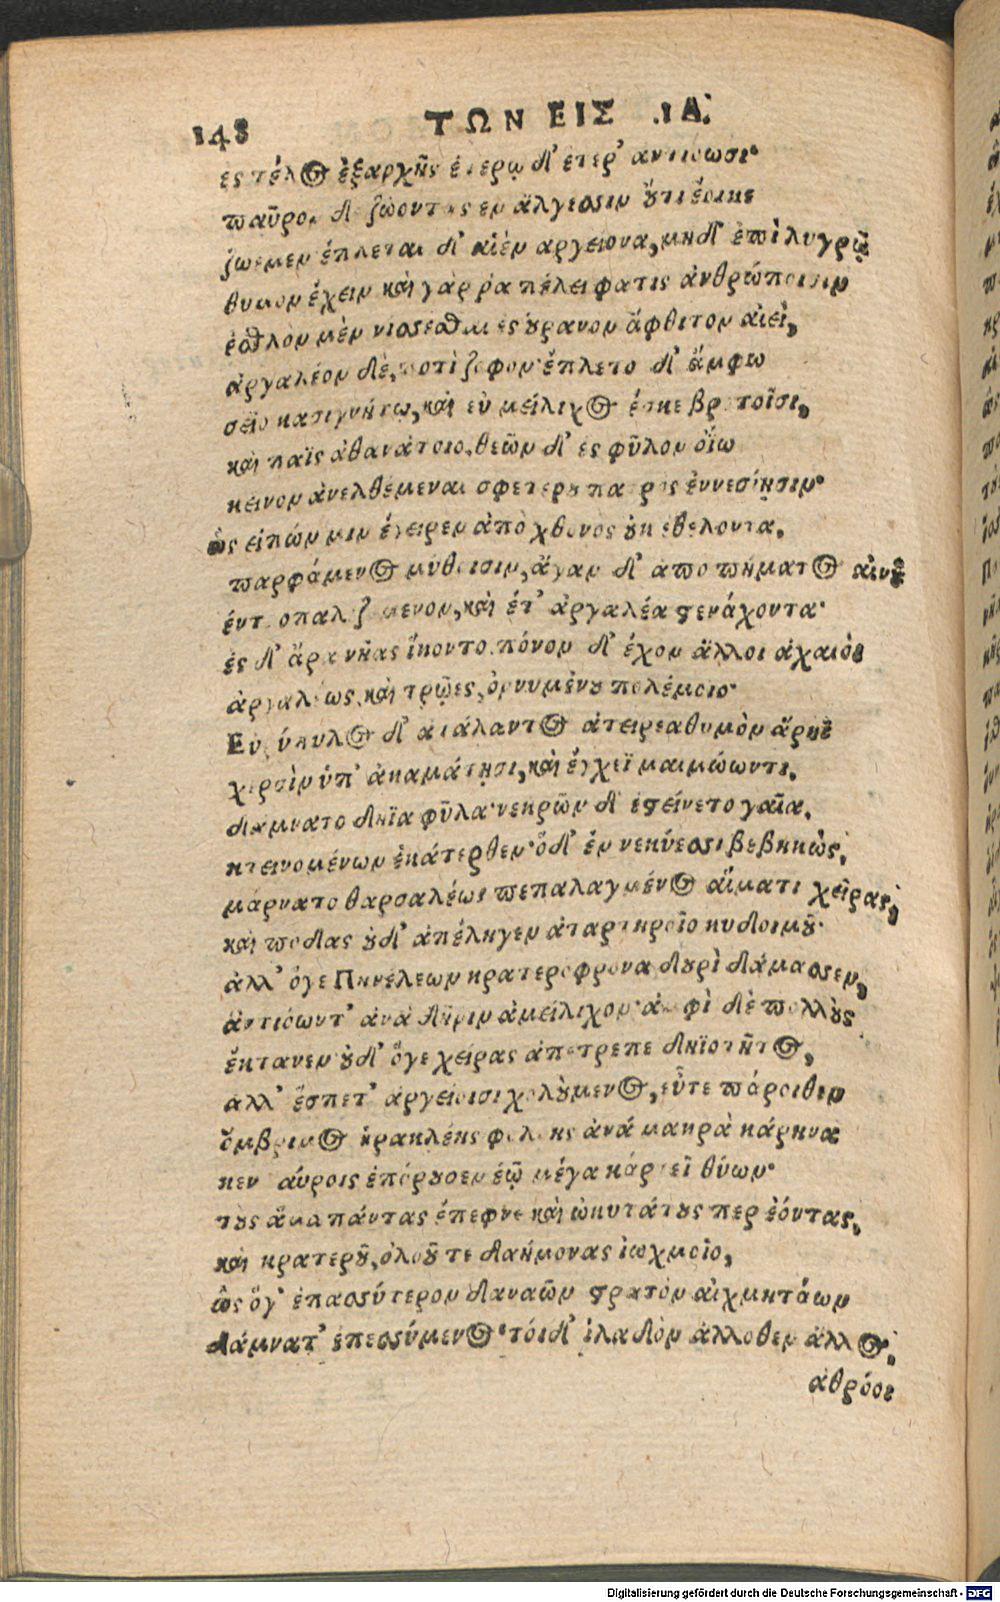 148 ΤΩΝ ΕΙΣ ΙΔ.
ἐς τέλος ἐξαρχῆς ἑτέρῳ δ' ἕτερ' ἀντιόωσι·
παῦροι δὲ ζώοντες ἐν ἄλγεσιν οὔτι ἔοικε
ζωέμεν ἔπλεται δ' αἰὲν ἀργείονα, μηδ' ἐπὶ λυγρῷ
θυμὸν ἔχειν καὶ γάρ ῥα πέλει φατις ἀνθρώποισιν
ἐσθλὸν μὲν νισεσθαι ἐς οὐρανον ἄφθιτον αἰεὶ,
ἀργαλέον δὲ, ποτὶ ζοφον· ἔπλετο δ' ἄμφω
σεῖο κασιγνήτῳ, καὶ εὐ μείλιχος ἔσκε βροτοῖσι,
καὶ παῖς ἀθανάτοιο, θεῶν δ' ἐς φῦλον ὀΐω
κεινον ἀνελθέμεναι σφετερου πατρὸς ἐννεσίῃσιν·
ὣς εἰπών μιν ἔγειρεν ἀπὸ χθονὸς οὐκ ἐθελοντα,
παρφάμενος μύθοισιν, ἄγαν δ' ἀπο πήματος αἰνοῦ
ἐντροπαλιζόμενον, καὶ ἔτ' ἀργαλέα στενάχοντα·
ἐς δ' ἄρα νῆας ἵκοντο. πόνον δ' ἔχον ἄλλοι ἀχαιοὶ
ἀργαλέως, καὶ τρῶες, ὀρνυμένου πολέμοιο·
Εὐρύπυλος δ' ἀτάλαντος ἀτειρεα θυμὸν ἄρηϊ
χερσὶν ὑπ' ἀκαμάτῃσι, καὶ ἔγχεϊ μαιμώωντι,
δάμνατο δήϊα φῦλα· νεκρῶν δ' ἐστείνετο γαῖα,
κτεινομένων ἑκάτερθεν· ὃ δ' ἐν νεκύεσσι βεβηκὼς,
μάρνατο θαρσαλέως πεπαλαγμένος αἵματι χεῖρας,
καὶ ποδας οὐδ' ἀπέληγεν ἀταρτηροῖο κυδοιμοῦ·
ἀλλ' ὅγε Πηνέλεων κρατερόφρονα δουρὶ δάμασσεν,
ἀντιόωντ' ἀνὰ δῆριν ἀμείλιχον· ἀμφὶ δὲ πολλοὺς
ἔκτανεν οὐδ' ὅγε χείρας ἀπέτρεπε δηϊοτῆτος,
ἀλλ' ἕσπετ' ἀργείοισι χολούμενος, εὖτε πάροιθεν
ὄμβριμος ἡρακλέης φολόης ἀνά μακρὰ κάρηνα
κενταύροις ἐπόρουσεν ἑῷ μέγα κάρτεϊ θύων·
τους ἅμα πάντας ἔπεφνε καὶ ὠκυτάτους περ ἐόντας,
καὶ κρατεροῦ, ὀλοοῦ τε δαήμονας ἰωχμοῖο,
ὣς ὅγ' ἐπασσύτερον δαναῶν στρατὸν αἰχμητάων
δάμνατ' ἐπεσσύμενος· τόι δ' ἰλαδὸν ἄλλοθεν ἄλλος,
ἀθρόοι
Digitalisierung gefördert durch die Deutsche Forschungsgemeinschaft - DFG